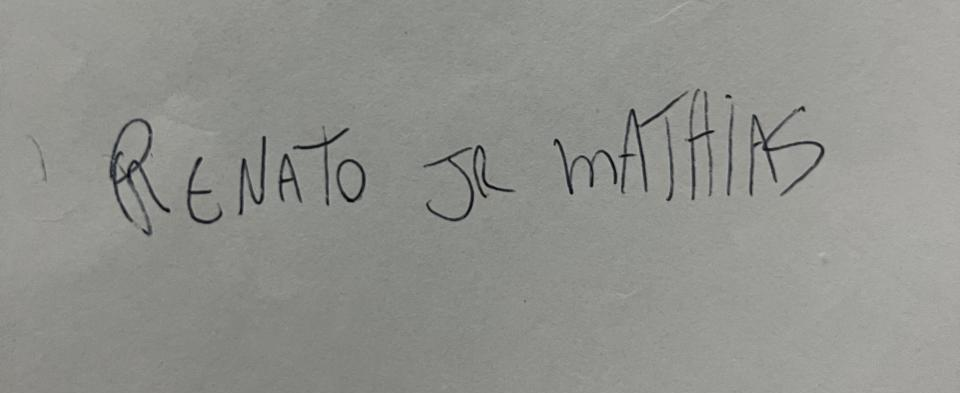 RENATO JR MATHIAS